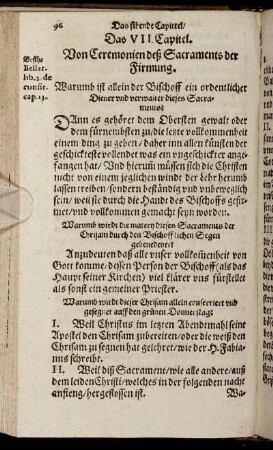 96 Das sibende Capittel/
Das VII. Capitel.
Von Ceremonien deß Sacraments der
Firmung.
Besihe
Bellar.
lib. 2. de
confir.
cap. 13.
Warumb ist allein der Bischoff ein ordentlicher
Diener und verwalter dieses Sacra-
ments?
Dann es gehöret dem Obersten gewalt oder
dem fürnembsten zu/ die letzte vollkommenheit
einem ding zu geben/ daher inn allen künsten der
geschickteste vollendet was ein vngeschickter ange-
fangen hat/ Vnd hierum müssen sich die Christen
nicht von einem jeglichen winde der Lehr herumb
lassen treiben/ sondern beständig vnd vnbeweglich
sein/ weil sie durch die Hande des Bischoffs gesir-
met/ vnd vollkommen gemacht seyn worden.
Warumb wirdt die matery dieses Sacraments der
Chrisam durch den Bischofflichen Segen
gebenedeyet?
Anzudeuten daß alle vnser vollkommenheit von
Gott komme/ dessen Person der Bischoff (als das
Haupt seiner Kirchen) viel klärer vns fürstellet
als sonst ein gemeiner Priester.
Warumb wird dieser Chrisam allein consecriert vnd
gesegnet auff den grünen Donnerstag?
I. Weil Christus im letzten Abendtmahl seine
Apostel den Chrisam zubereiten/ oder die weiß den
Chrisam zu segnen hat gelehret/ wie der H. Fabia-
nus schreibt.
II. Weil diß Sacrament/ wie alle andere/ auß
dem leiden Christi/ welches in der folgenden nacht
anfieng/ hergeflossen ist.
Wa-